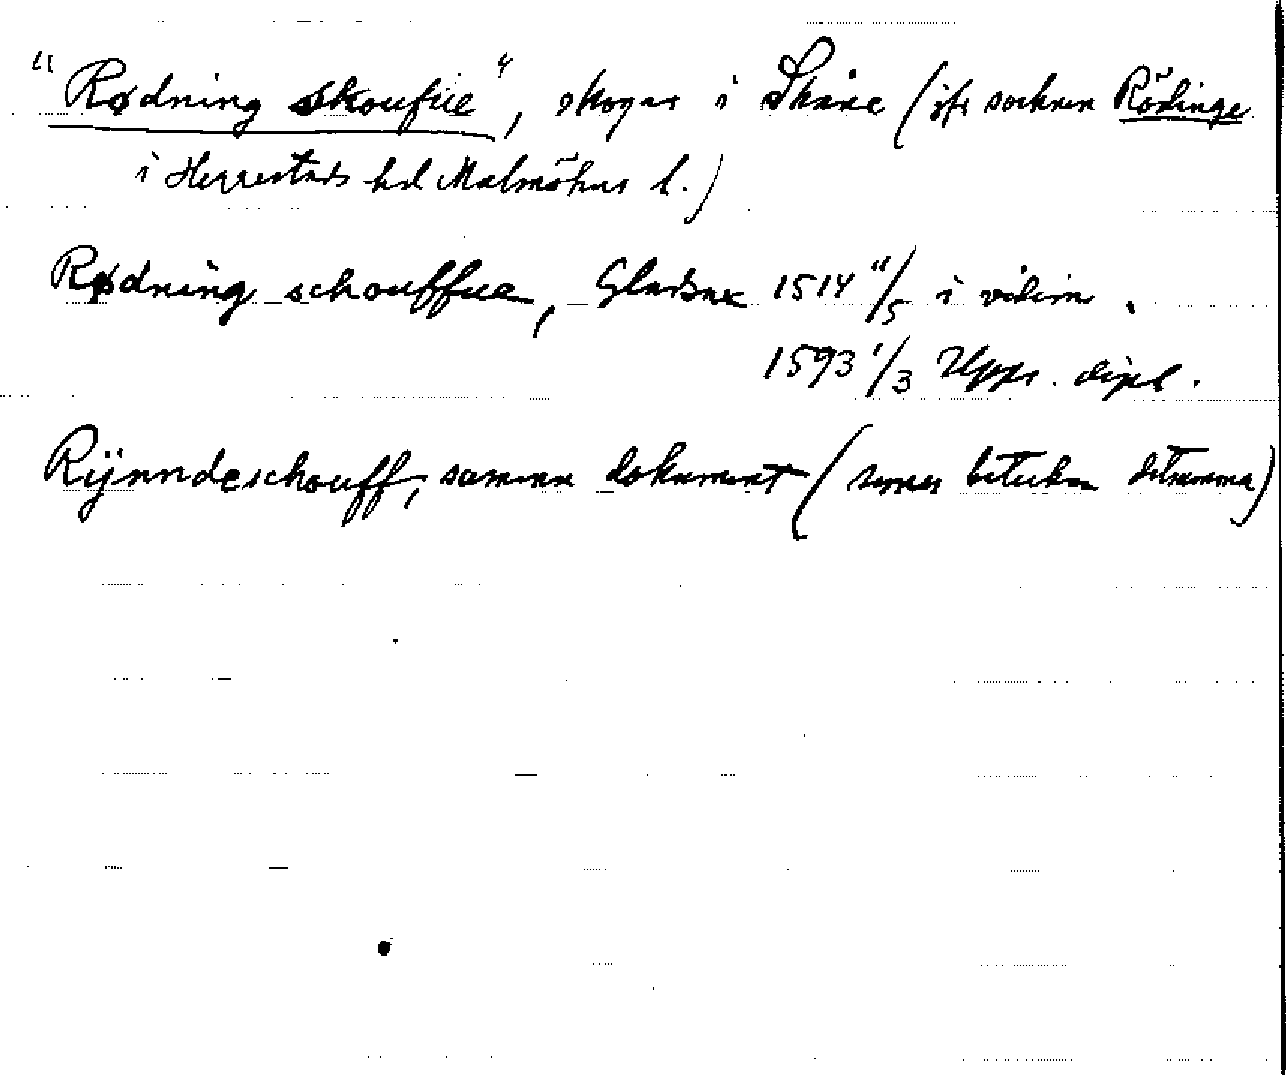 "Rødning skoufue", skogar i Skåne (jfr socknen Rödinge
i Herrestads hd Malmöhus l.)
Rødning schouffue, Gladsax 1514 11/5 i vidim.
1593 1/3 Upps. dipl.
Rÿnndeschouff, samma dokument (synes beteckna detsamma)